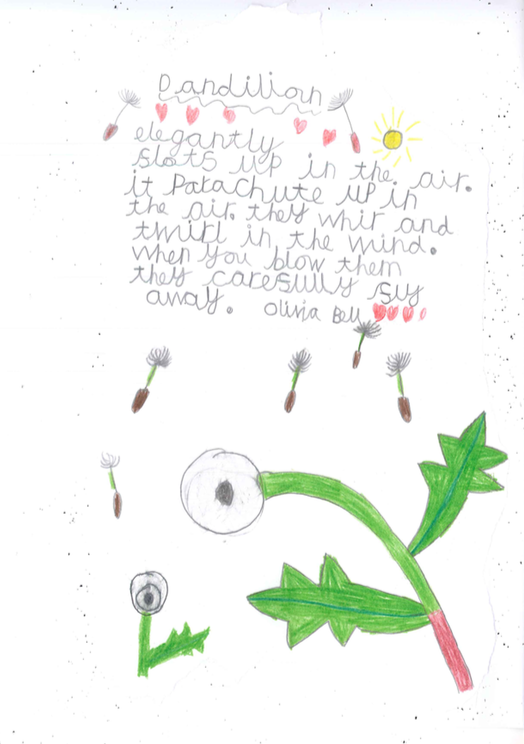 Dandilion
elegantly
slots up in the air.
it Parachute up in
the air. they whir and
twirl in the wind.
when you blow them
they carefully fly
away. Olivia Bell